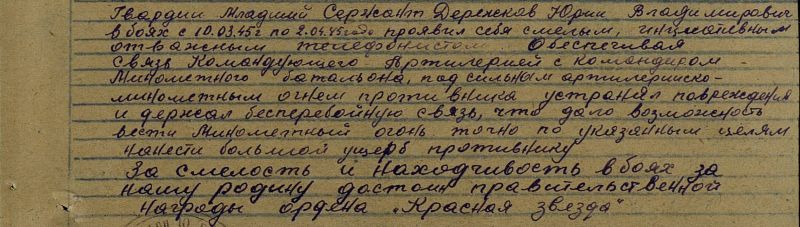 Гвардии Младший Сержант Деренсков Юрий Владимирович
в боях с 10.03.45г по 2.04.45 года проявил себя смелым, инциативным
отважным телефонистом. Обеспечивая
связь Командующего Артилерией с командиром
Минометного батальона, под сильным артилерииско-
минометным огнем противника устранял повреждения
и держал бесперебойную связь, что дало возможность
вести Минометный огонь точно по указанным целям
нанести большой ущерб противнику
За смелость и находчивость в боях за
нашу родину достоин правительственной
награды ордена „Красная звезда"